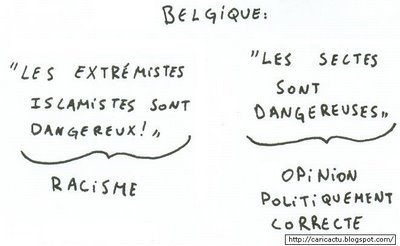 BELGIQUE:
"LES EXTRÉMISTES
ISLAMISTES SONT
DANGEREUX!"
RACISME
"LES SECTES
SONT
DANGEREUSES"
OPINION
POLITIQUEMENT
CORRECTE
http://caricactu.blogspot.com/